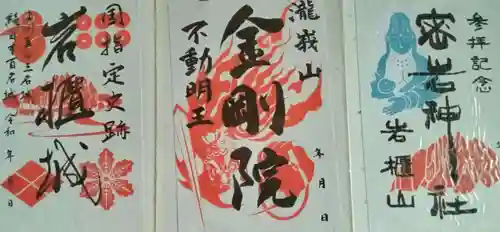 参拝記念
密岩神社
岩櫃山
瀧峩山
金剛院
不動明王
年 月 日
国指定史跡
岩櫃城
続日本百名城
令和 年 月 日